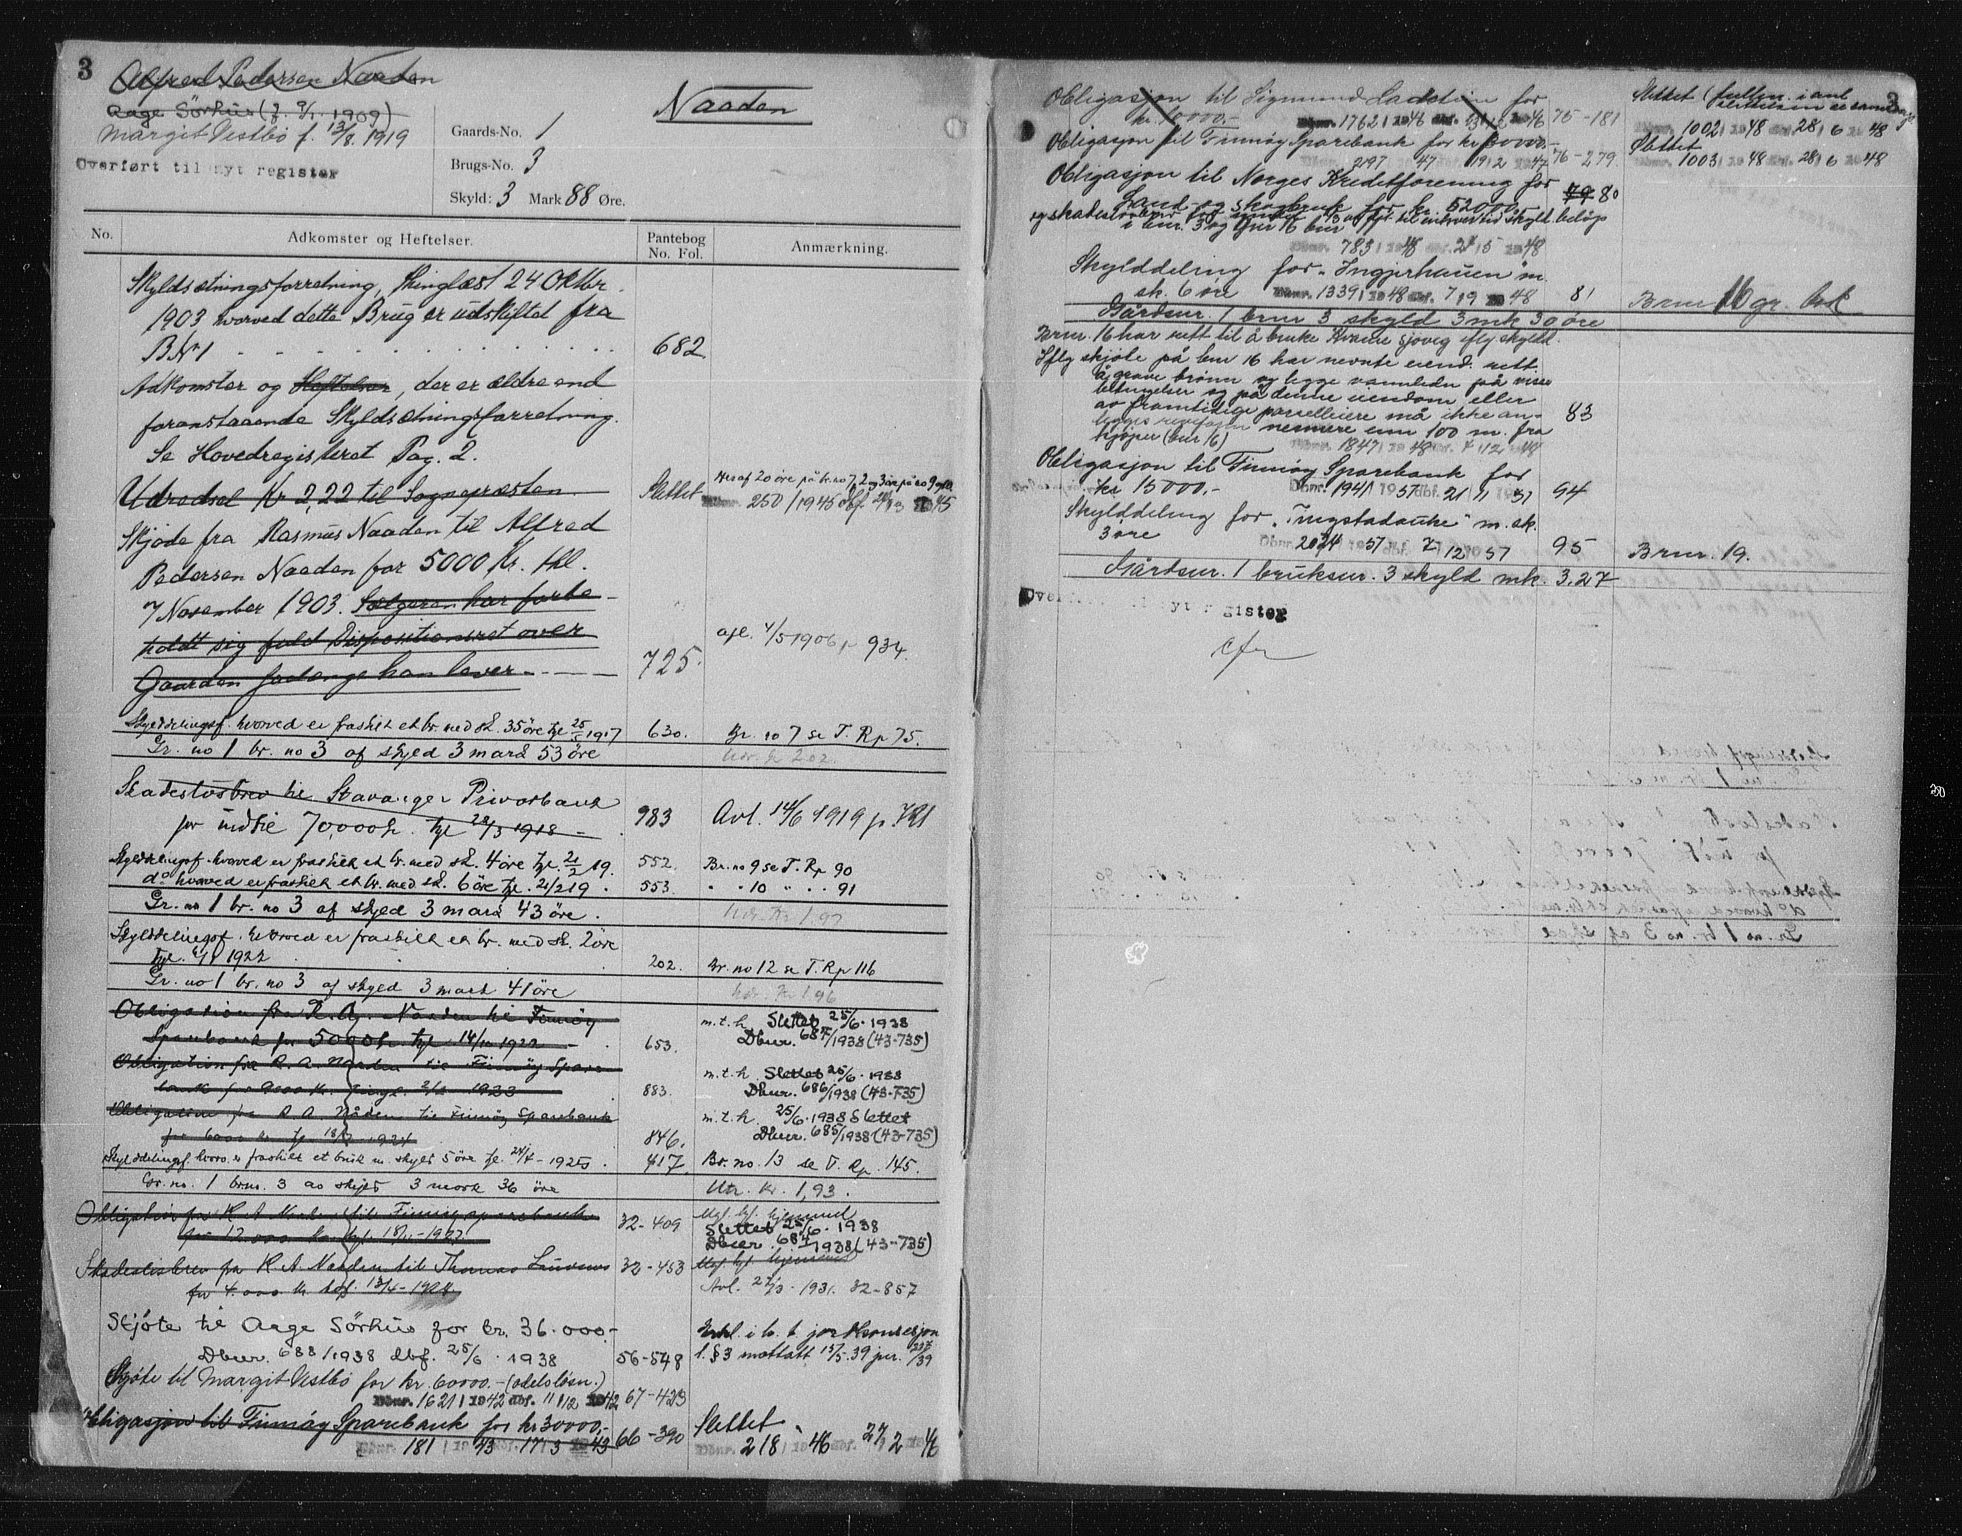 3
Alfred Pedersen Naaden
Aage Sörhus (f. 9/1. 1909)
Margit Vestbö f. 13/8. 1919
Overført til nyt register
Naaden
Gaards-No. 1
Brugs-No. 3
Skyld: 3 Mark 88 Øre.
No. Adkomster og Heftelser. Pantebog No. Fol. Anmærkning.
Skyldsætningsforretning, thinglæst 24 Oktbr.
1903 hvorved dette Brug er udskiftet fra
B.Nr 1 682
Adkomster og Heftelser, der er ældre end
foranstaaende Skyldsætningsforretning.
Se Hovedregisteret Pag. 2.
Udredsel Kr 2,22 til Sognepræsten. Slettet
250/1945 dbf.
Skjøde fra Rasmus Naaden til Alfred
Pedersen Naaden for 5000 Kr. thl.
7 November 1903. Sælgeren har forbe-
holdt sig fuld Dispositionsret over
Gaarden saalænge han lever 725. afl. 4/5 1906, p 934.
Skylddelingsf. hvorved er fraskilt et br. med sk. 35 öre tgl 25/5 1917 630. Br. no 7 se T. Rp 75.
Gr. no 1 br. no 3 af skyld 3 mark 53 öre
Skadesløsbrev til Stavanger Privatbank
for indtil 70,000 kr. tgl 28/3 1918 983 Avl. 14/6 1919 p 781
Skylddelingsf. hvorved er fraskilt et br. med sk. 4 öre tgl. 21/2 19. 552. Br. no 9 se T. Rp 90
do hvorved er fraskilt et br. med sk. 6 öre tgl. 21/2 19. 553. " " 10 " " " 91
Gr. no 1 br. no 3 af skyld 3 mark 43 öre.
Skylddelingsf. hvorved er fraskilt et br. med sk. 2 öre
tgl. 1922 202. Br. no 12 se T. Rp 116
Gr. no 1 br. no 3 af skyld 3 mark 41 öre
Obligation fra R. A. Naaden til Finnöy m.t.h. Slettet 25/6. 1938
Sparebank for 5000 kr. tgl. 14/10 1922 653. Dbnr. 687/1938 (43-735)
Obligation fra R. A. Naaden til Finnöy Spare- m.t.h. Slettet 25/6. 1938
bank for 9000 kr. tingl. 2/2 1923 883. Dbnr. 686/1938 (43-735)
Obligation fra R A. Nåden til Finnöy Sparebank m.t.h. 25/6. 1938 Slettet
for 6000 kr. tgl. 1924 846. Dbnr. 685/1938 (43-735)
Skylddelingsf. hvorv. er fraskilt et bruk m. skyld 5 öre tgl. 24/4 - 1925. 417. Br. no. 13 se T. Rp. 145.
Gr. no. 1 brnr. 3 av skyld 3 mark 36 öre Utr. kr. 1,93.
Obligation fra R. A Naaden til Finnöy sparebank 32-409 Slettet 25/6. 1938
for 12.000 kr. tgl. 1927 Dbnr. 684/1938 (43-735)
Skadeslösbrev fra R. A Naaden til Thomas 32-453
for 4.000 kr. dbf. 13/4 - 1928 Avl. 27/3 - 1931. 32-857
Skjöte til Aage Sörhus for kr. 36.000.-
Dbnr. 688/1938 dbf. 25/6. 1938 56-548 Erkl. i h. t. jordkonsesjon
l. § 3 mottatt 15/5. 39 jnr. 237/39
Skjöte til Margit Vestbö for kr. 60000.- (odelslösn.)
Dbnr. 1621/1942 dbf. 11/12 1942 67-423
Obligasjon til Finnöy Sparebank for kr 30000,- 66-390 Slettet
Dbnr. 181/1943 dbf. 17/3 1943 Dbnr. 218/1946 dbf. 27/2 1946
3
Obligasjon til Sigmund Ladstein for
kr. 10000.- Dbnr. 1762/1946 75-181
Dbnr. 1002/1948 dbf. 28/6 1948
Obligasjon til Finnöy Sparebank for kr
Dbnr. 2197/1947 dbf. 19/12 1947 76-279. Slettet
Dbnr. 1003/1948 dbf. 28/6 1948
Obligasjon til Norges Kreditforening for 79 80
Land- og skogbruk for kr. 52000.-
i bnr. 3 og gnr 16 bnr
Dbnr. 783/1948 dbf. 1948
Skylddeling for "Ingjerhauen" m.
sk. 6 öre Dbnr. 1339/1948 dbf. 7/9 1948 81 Brnr 16 gr. bok
Gårdsnr. 1 brnr 3 skyld 3 mk 30 öre
Brnr. 16 har rett til å bruke sjöveg iflg skyldd.
Iflg skjöte på bnr 16 har nevnte eiend. rett
å grave brönn og legge vannledn på visse
betingelser og på denne eiendom eller
av framtidige parselleiere må ikke an-
legges revefarm nærmere enn 100 m. fra
kjöper (bnr 16) 83
Dbnr. 1847/1948 dbf. 4/12 1948
Obligasjon til Finnöy Sparebank for
kr 15000,- Dbnr. 1941/1957 dbf. 21/11 1957 94
Skylddeling for "Tingstadauke" m. sk.
3 öre Dbnr. 2024/1957 dbf. 7/12 1957 95 Brnr. 19.
Gårdsnr. 1 bruksnr. 3 skyld mk. 3.27